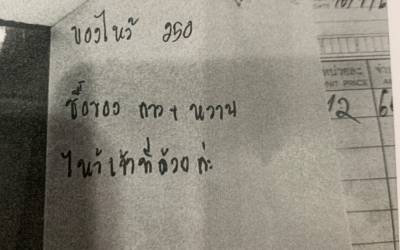 ของไหว้ 250
ซื้อของ คาว + หวาน
ไหว้เจ้าที่ด้วยค่ะ
หน่วยละ
UNIT PRICE
12